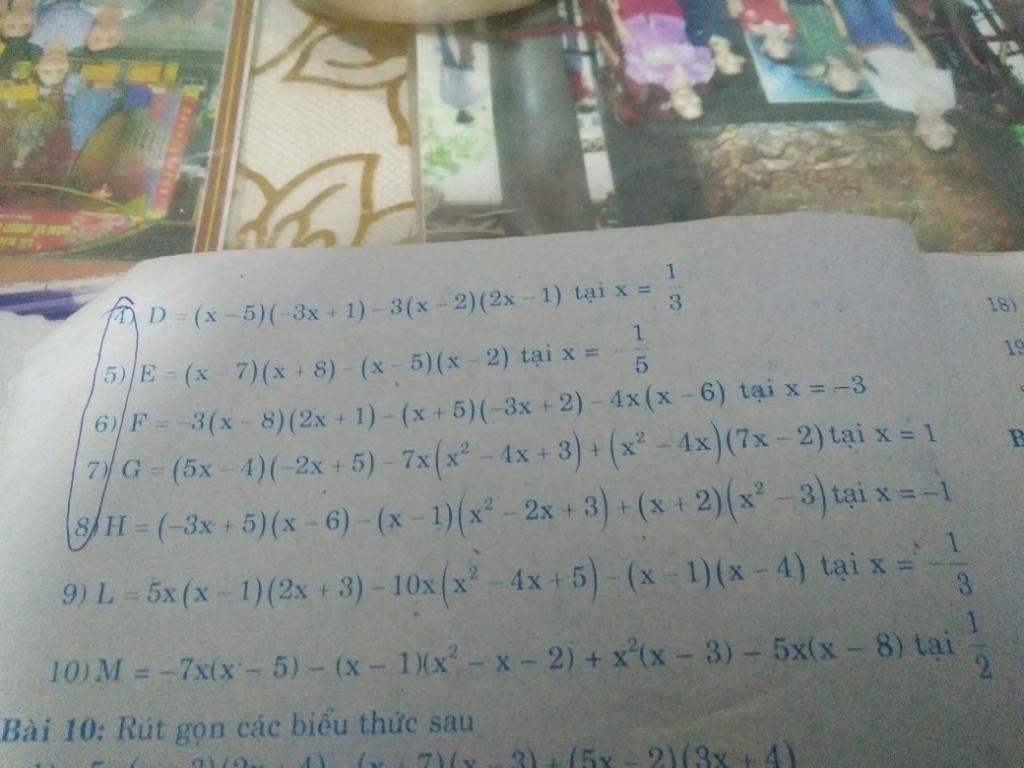 4) D = (x – 5)(–3x + 1) – 3(x – 2)(2x – 1) tại x = 1/3
5) E = (x – 7)(x + 8) – (x – 5)(x – 2) tại x = –1/5
6) F = –3(x – 8)(2x + 1) – (x + 5)(–3x + 2) – 4x(x – 6) tại x = –3
7) G = (5x – 4)(–2x + 5) – 7x(x² – 4x + 3) + (x² – 4x)(7x – 2) tại x = 1
8) H = (–3x + 5)(x – 6) – (x – 1)(x² – 2x + 3) + (x + 2)(x² – 3) tại x = –1
9) L = 5x(x – 1)(2x + 3) – 10x(x² – 4x + 5) – (x – 1)(x – 4) tại x = –1/3
10) M = –7x(x – 5) – (x – 1)(x² – x – 2) + x²(x – 3) – 5x(x – 8) tại 1/2
Bài 10: Rút gọn các biểu thức sau
18)
19
B